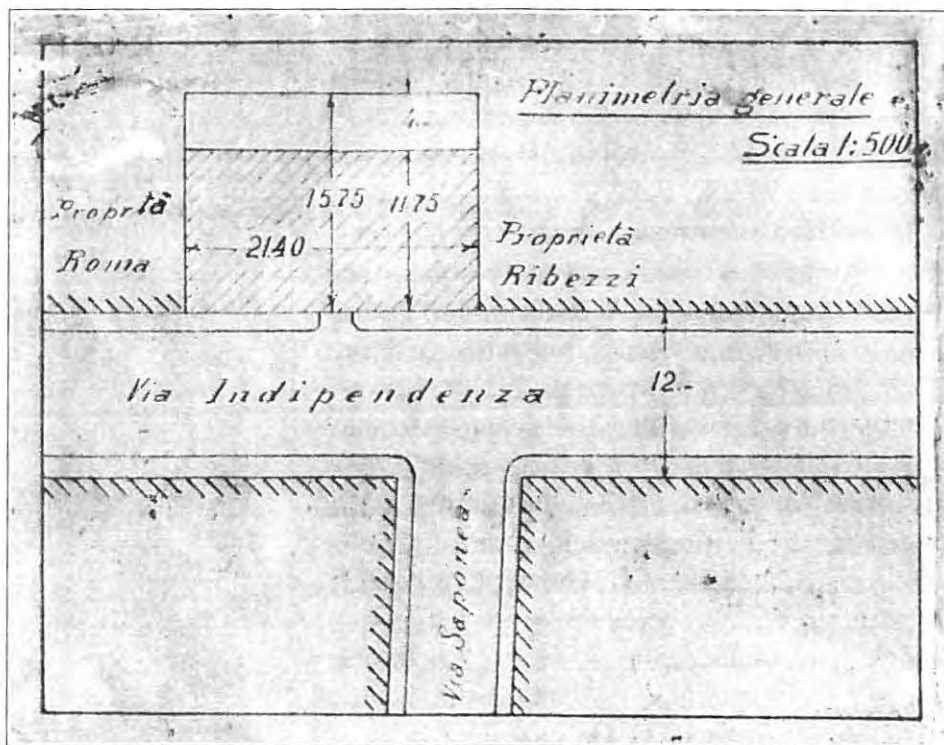 Planimetria generale e
Scala 1:500
4.-
1575
1175
2140
Proprtà
Roma
Proprietà
Ribezzi
Via Indipendenza
12.-
Via Saponea